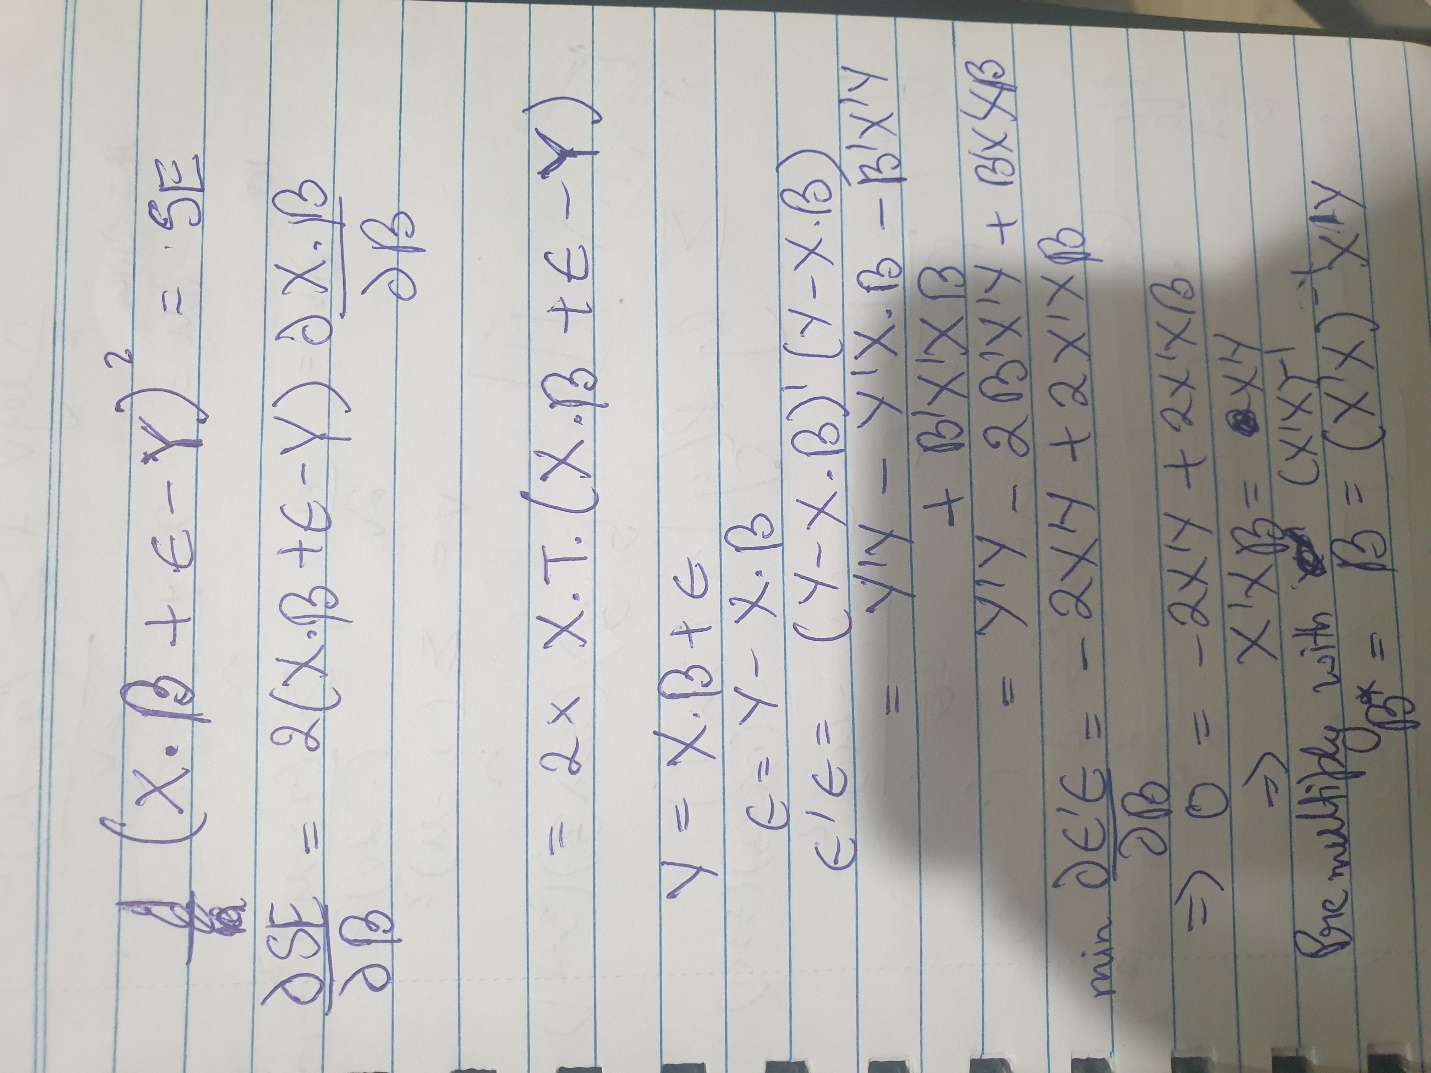 (X.β + ϵ - Y)² = SE
∂SE/∂β = 2(X.β + ϵ - Y) ∂X.β/∂β
= 2 x X.T.(X.β + ϵ - Y)
Y = X.β + ϵ
ϵ = Y - X.β
ϵ'ϵ = (Y - X.β)' (Y - X.β)
= Y'Y - Y'X.β - β'X'Y
+ β'X'Xβ
= Y'Y - 2β'X'Y + β'X'Xβ
min ∂ϵ'ϵ/∂β = - 2X'Y + 2X'Xβ
⇒ 0 = - 2X'Y + 2X'Xβ
⇒ X'Xβ = X'Y
Pre multiply with (X'X)⁻¹
β* = β = (X'X)⁻¹ X'Y